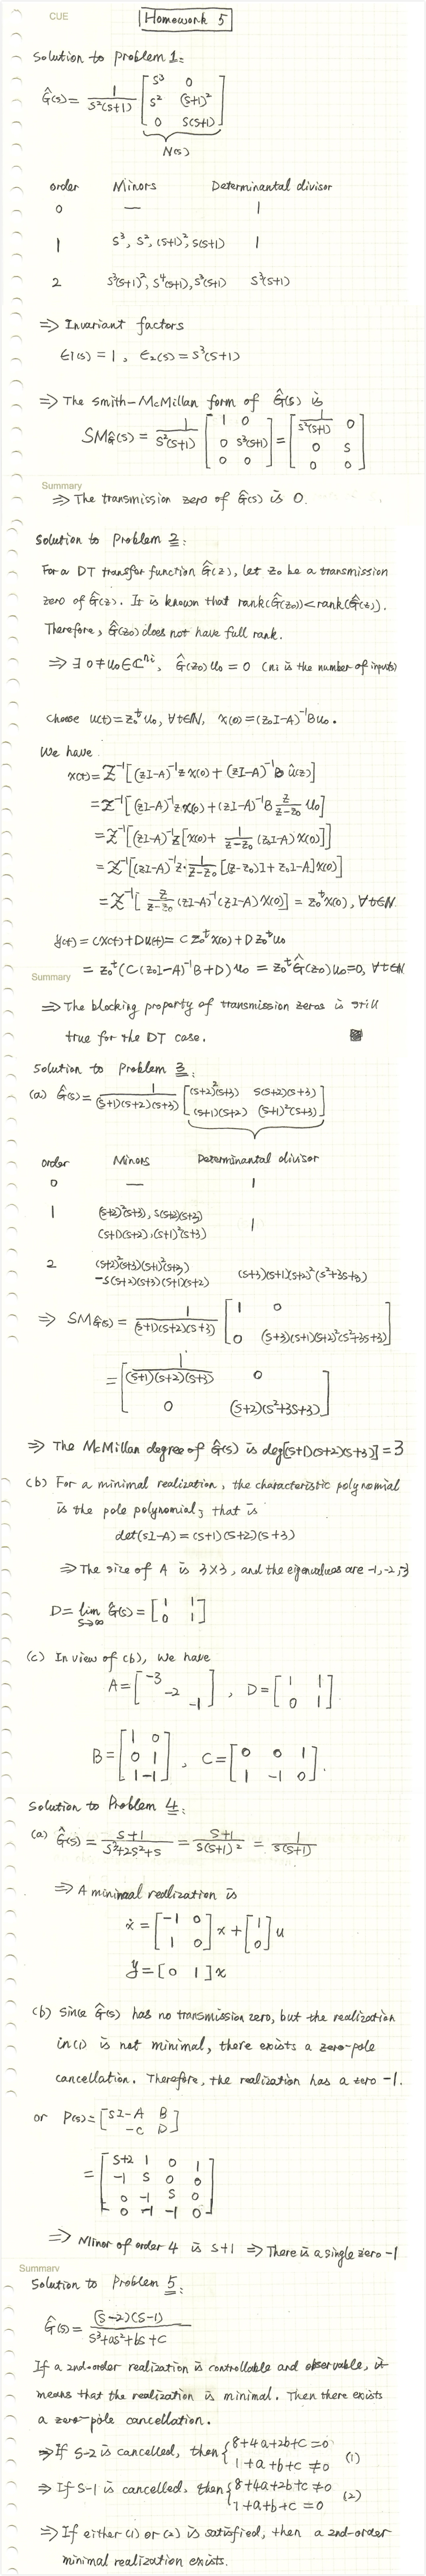 CUE
Homework 5
Solution to problem 1:
Ĝ(s) = 1/(s²(s+1)) [s³ 0; s² (s+1)²; 0 s(s+1)]
N(s)
order Minors Determinantal divisor
0 — 1
1 s³, s², (s+1)², s(s+1) 1
2 s³(s+1)², s⁴(s+1), s³(s+1) s³(s+1)
⇒ Invariant factors
ε1(s) = 1, ε₂(s) = s³(s+1)
⇒ The Smith-McMillan form of Ĝ(s) is
SM_Ĝ(s) = 1/(s²(s+1)) [1 0; 0 s³(s+1); 0 0] = [1/(s²(s+1)) 0; 0 s; 0 0]
Summary
⇒ The transmission zero of Ĝ(s) is 0.
Solution to Problem 2:
For a DT transfer function Ĝ(z), let z₀ be a transmission
zero of Ĝ(z). It is known that rank(Ĝ(z₀)) < rank(Ĝ(z)).
Therefore, Ĝ(z₀) does not have full rank.
⇒ ∃ 0 ≠ u₀ ∈ ℂ^ni, Ĝ(z₀) u₀ = 0 (ni is the number of inputs)
Choose u(t) = z₀ᵗ u₀, ∀t∈ℕ, x(0) = (z₀I-A)⁻¹Bu₀.
We have
x(t) = Z⁻¹[(zI-A)⁻¹z x(0) + (zI-A)⁻¹B û(z)]
= Z⁻¹[(zI-A)⁻¹z x(0) + (zI-A)⁻¹B z/(z-z₀) u₀]
= Z⁻¹[(zI-A)⁻¹z[x(0) + 1/(z-z₀) (z₀I-A) x(0)]]
= Z⁻¹[(zI-A)⁻¹z · 1/(z-z₀) [(z-z₀)I + z₀I-A] x(0)]
= Z⁻¹[z/(z-z₀) (zI-A)⁻¹(zI-A) x(0)] = z₀ᵗ x(0), ∀t∈ℕ.
y(t) = Cx(t) + Du(t) = C z₀ᵗ x(0) + D z₀ᵗ u₀
= z₀ᵗ (C(z₀I-A)⁻¹B + D) u₀ = z₀ᵗ Ĝ(z₀) u₀ = 0, ∀t∈ℕ
Summary
⇒ The blocking property of transmission zeros is still
true for the DT case.
Solution to Problem 3:
(a) Ĝ(s) = 1/((s+1)(s+2)(s+3)) [(s+2)²(s+3) s(s+2)(s+3); (s+1)(s+2) (s+1)²(s+3)]
order Minors Determinantal divisor
0 — 1
1 (s+2)²(s+3), s(s+2)(s+3) 1
(s+1)(s+2), (s+1)²(s+3)
2 (s+2)²(s+3)(s+1)²(s+3) (s+3)(s+1)(s+2)²(s²+3s+3)
-s(s+2)(s+3)(s+1)(s+2)
⇒ SM_Ĝ(s) = 1/((s+1)(s+2)(s+3)) [1 0; 0 (s+3)(s+1)(s+2)²(s²+3s+3)]
= [1/((s+1)(s+2)(s+3)) 0; 0 (s+2)(s²+3s+3)]
⇒ The McMillan degree of Ĝ(s) is deg[(s+1)(s+2)(s+3)] = 3
(b) For a minimal realization, the characteristic polynomial
is the pole polynomial, that is
det(sI-A) = (s+1)(s+2)(s+3)
⇒ The size of A is 3×3, and the eigenvalues are -1,-2,-3
D = lim s→∞ Ĝ(s) = [1 1; 0 1]
(c) In view of (b), we have
A = [-3 -2 -1], D = [1 1; 0 1]
B = [1 0; 0 1; 1 -1], C = [0 0 1; 1 -1 0].
Solution to Problem 4:
(a) Ĝ(s) = (s+1)/(s³+2s²+s) = (s+1)/(s(s+1)²) = 1/(s(s+1))
⇒ A minimal realization is
ẋ = [-1 0; 1 0] x + [1; 0] u
y = [0 1] x
(b) Since Ĝ(s) has no transmission zero, but the realization
in (1) is not minimal, there exists a zero-pole
cancellation. Therefore, the realization has a zero -1.
or P(s) = [sI-A B; -C D]
= [s+2 1 0 1; -1 s 0 0; 0 -1 s 0; 0 -1 -1 0]
⇒ Minor of order 4 is s+1 ⇒ There is a single zero -1
Summary
Solution to Problem 5:
Ĝ(s) = (s-2)(s-1)/(s³+as²+bs+c)
If a 2nd-order realization is controllable and observable, it
means that the realization is minimal. Then there exists
a zero-pole cancellation.
⇒ If s-2 is cancelled, then {8+4a+2b+c = 0; 1+a+b+c ≠ 0 (1)
⇒ If s-1 is cancelled, then {8+4a+2b+c ≠ 0; 1+a+b+c = 0 (2)
⇒ If either (1) or (2) is satisfied, then a 2nd-order
minimal realization exists.